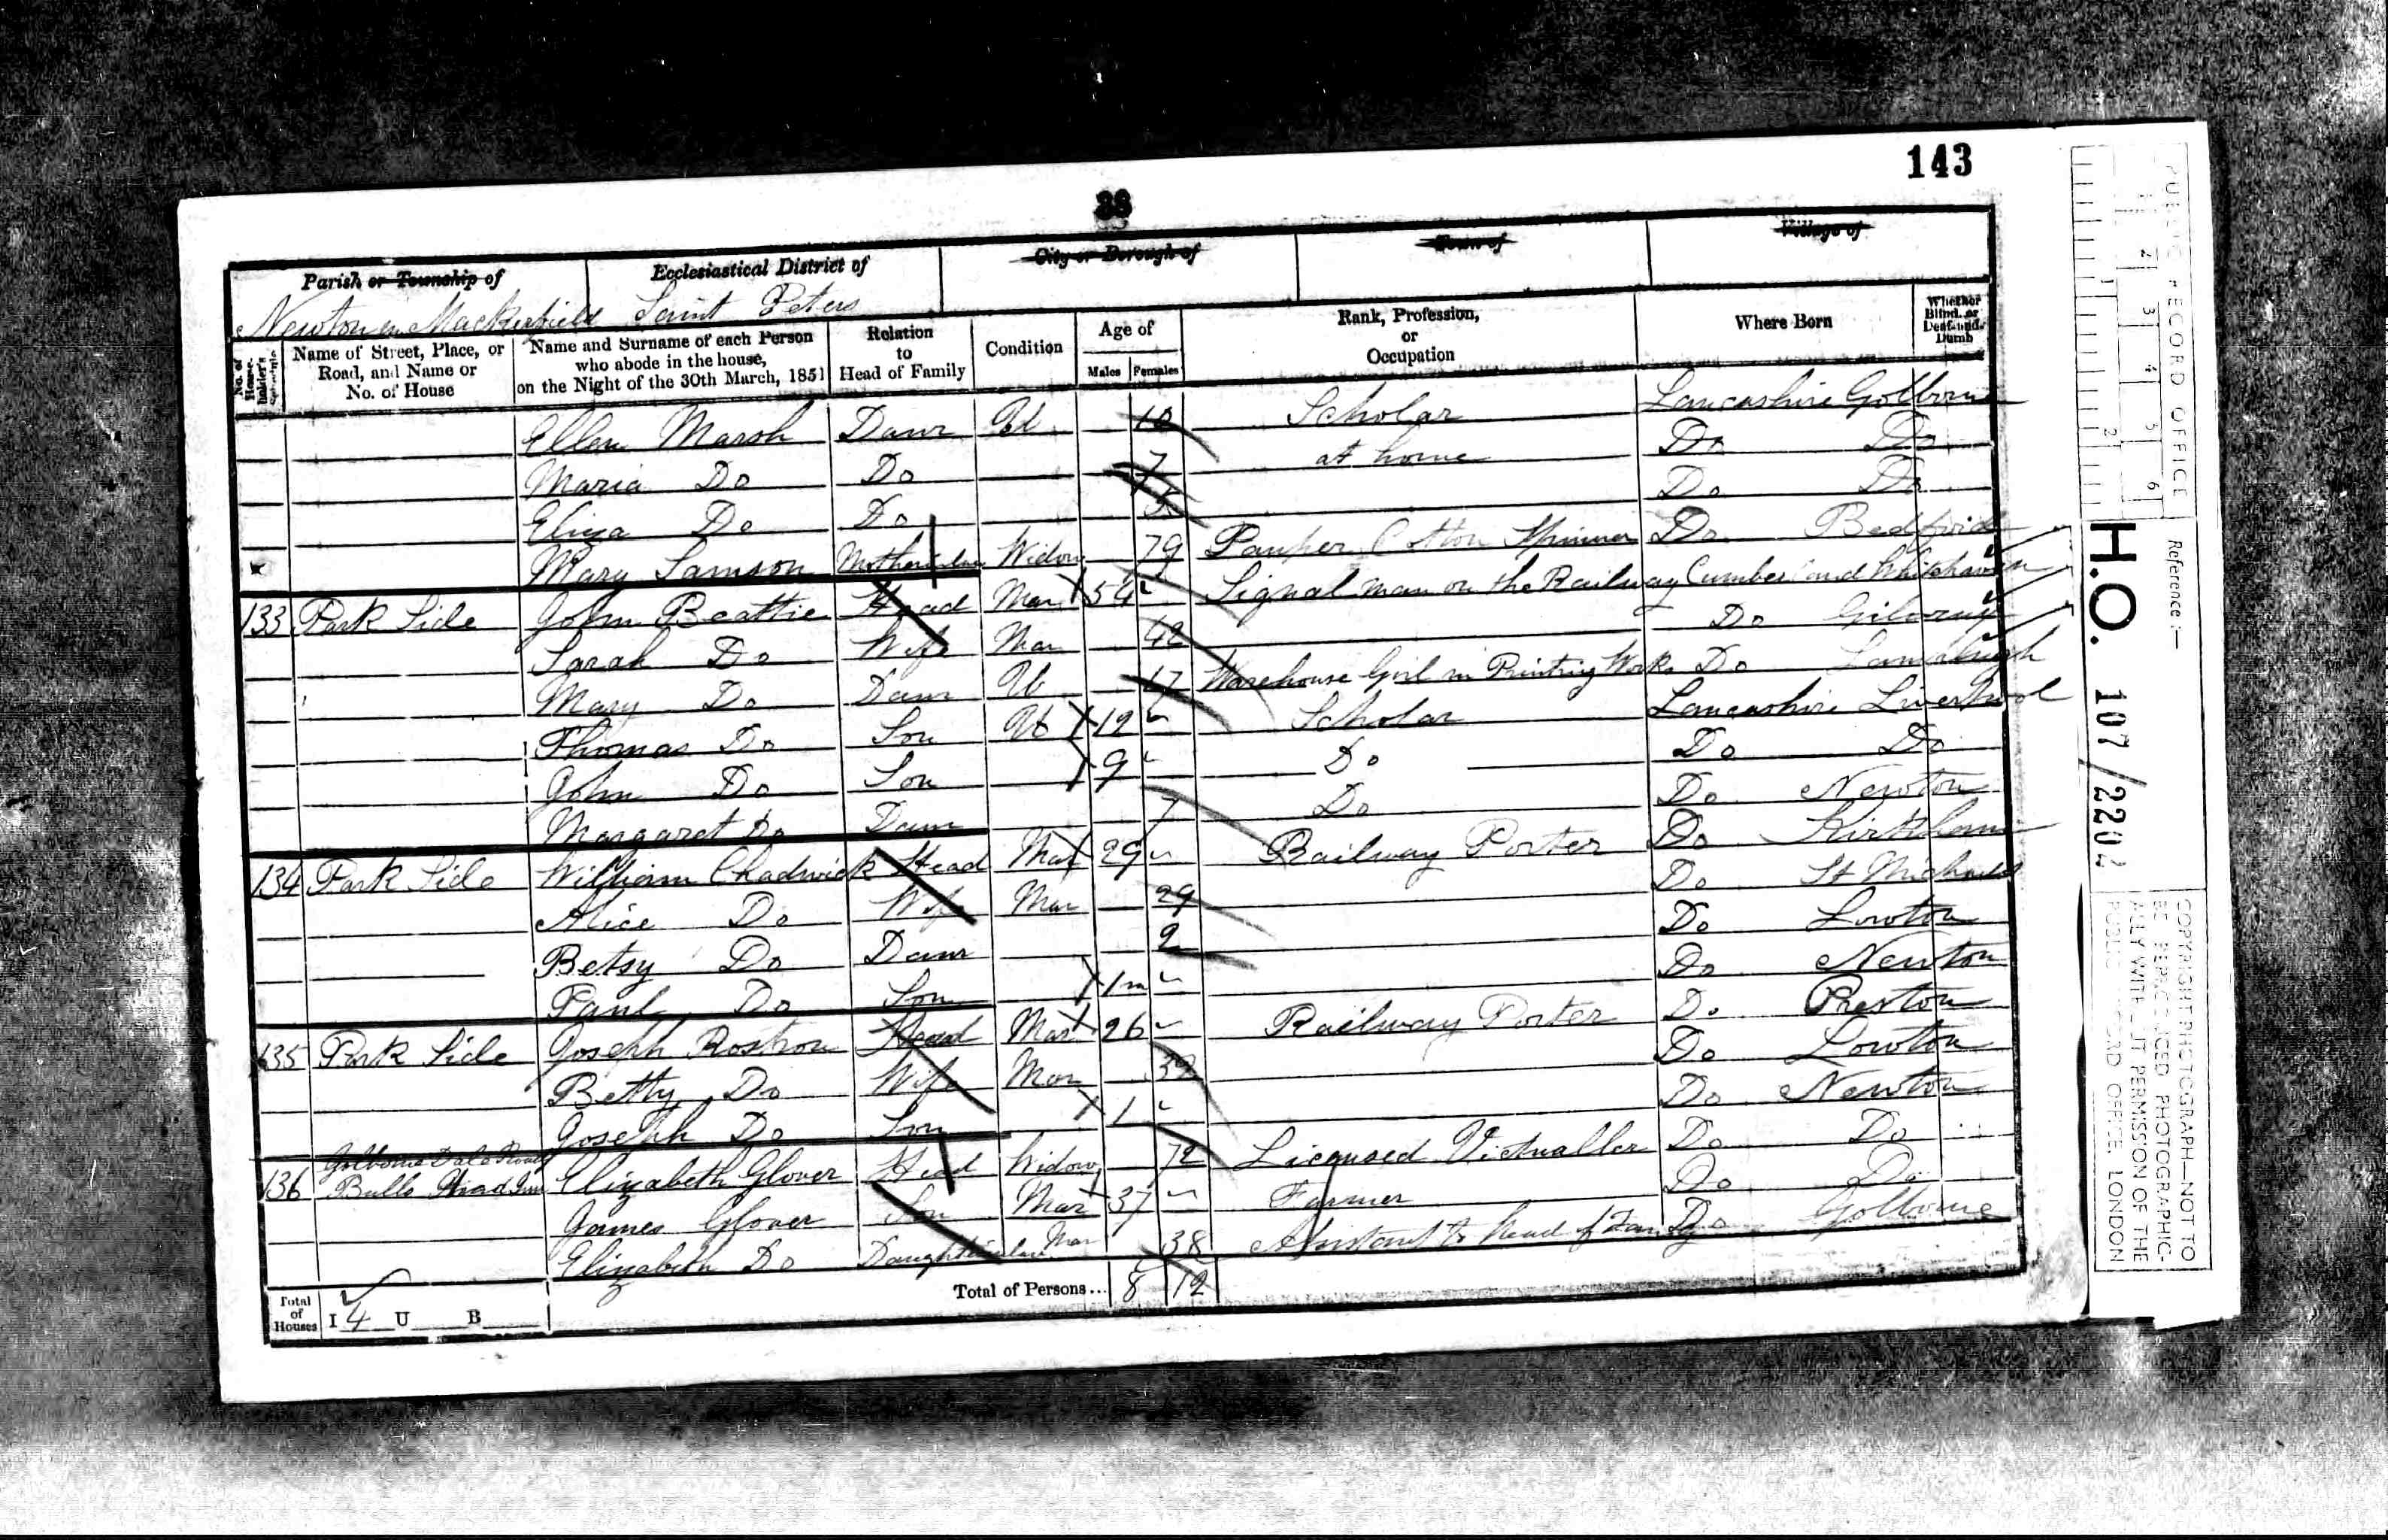 143
38
Parish or Township of
Ecclesiastical District of
City or Borough of
Town of
Village of
Newton in Mackerfield
Saint Peters
No. of House-holder's Schedule
Name of Street, Place, or Road, and Name or No. of House
Name and Surname of each Person who abode in the house, on the Night of the 30th March, 1851
Relation to Head of Family
Condition
Age of
Males
Females
Rank, Profession, or Occupation
Where Born
Whether Blind, or Deaf-and-Dumb
Ellen Marsh Daur U 10 Scholar Lancashire Golborne
Maria Do Do 7 at home Do Do
Eliza Do Do 5 Do Do
Mary Samson Motherinlaw Widow 79 Pauper Cotton Spinner Do Bedford
133 Park Side John Beattie Head Mar 54 Signal man on the Railway Cumberland Whitehaven
Sarah Do Wife Mar 42 Do
Mary Do Daur U 17 Warehouse Girl in Printing Works Do
Thomas Do Son U 12 Scholar Lancashire Liverpool
John Do Son 9 Do Do Do
Margaret Do Daur 7 Do Do Newton
134 Park Side William Chadwick Head Mar 29 Railway Porter Do Kirkham
Alice Do Wife Mar 29 Do St Michaels
Betsy Do Daur 2 Do Lowton
Paul Do Son 1m Do Newton
135 Park Side Joseph Rostron Head Mar 26 Railway Porter Do Preston
Betty Do Wife Mar 32 Do Lowton
Joseph Do Son 1 Do Newton
Golborne Dale Road
136 Bulls Head Inn Elizabeth Glover Head Widow 72 Licensed Victualler Do Do
James Glover Son Mar 37 Farmer Do Do
Elizabeth Do Daughterinlaw Mar 38 Assistant to head of Family Do Golborne
Total of Houses I 4 U B
Total of Persons... 8 12
PUBLIC RECORD OFFICE
1 2 3 4 5 6
1 2
Reference:—
H.O. 107/2202
COPYRIGHT PHOTOGRAPH—NOT TO BE REPRODUCED PHOTOGRAPHICALLY WITHOUT PERMISSION OF THE PUBLIC RECORD OFFICE, LONDON